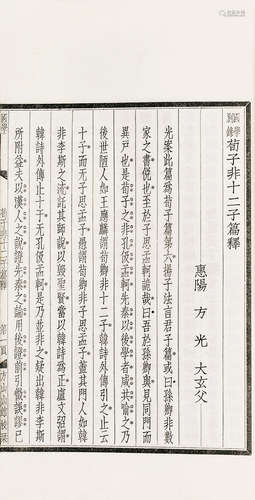 國學別錄
荀子非十二子篇釋
惠陽 方光 大玄父
光案此篇為荀子篇第六揚子法言君子篇或曰孫卿非數
家之書侻也至於子思孟軻詭哉曰吾於孫卿與見同門而
異戶也是荀子之非孔伋孟軻先秦以後學者咸共喻之乃
後世陋人如王應麟謂荀卿非十二子韓詩外傳引之止云
十子而無子思孟子愚謂荀卿非子思孟子蓋其門人如韓
非李斯之流託其師說以毀聖賢當以韓詩為正盧文弨謂
韓詩外傳止于十子無孔伋孟軻是乃並非之疑出韓非李斯
所附益夫以漢人之說證先秦之論用後證前引微課謬已
國學別錄
荀子非十二子篇釋
第一頁